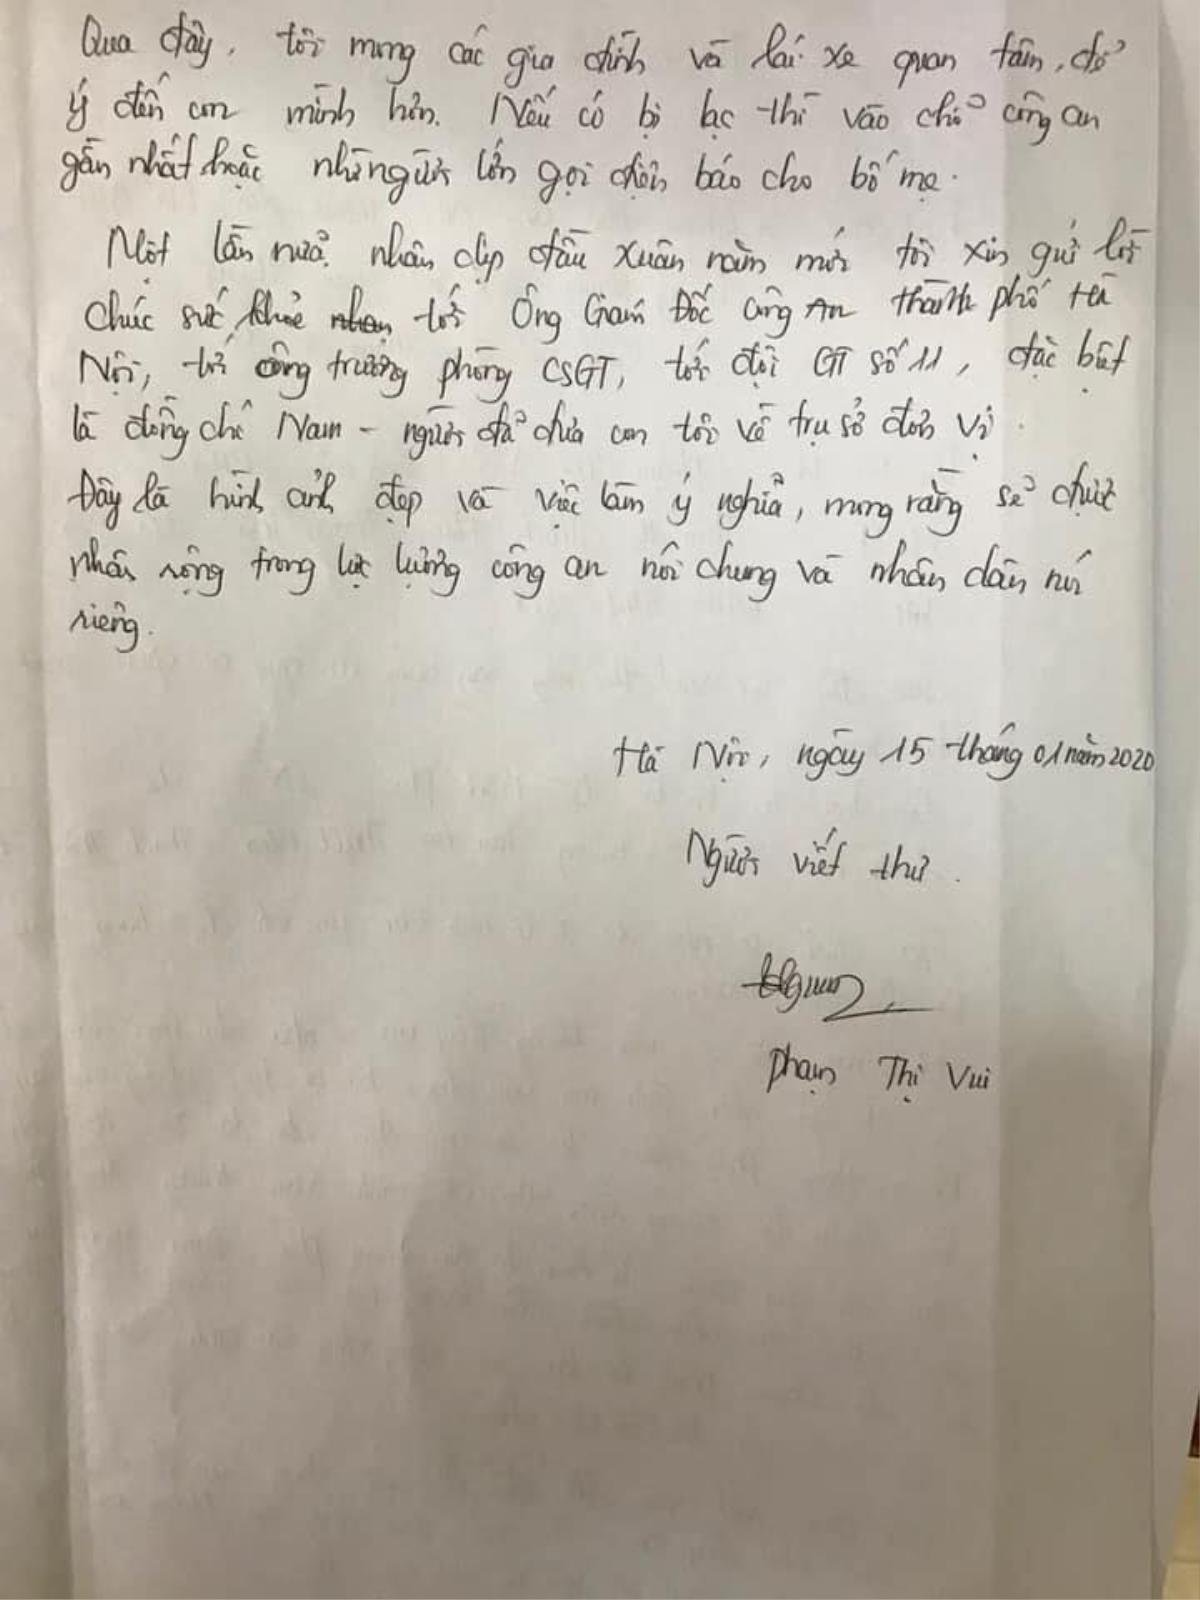 Qua đây, tôi mong các gia đình và lái xe quan tâm, để
ý đến con mình hơn. Nếu có bị lạc thì vào chỗ công an
gần nhất hoặc nhờ người lớn gọi điện báo cho bố mẹ.
Một lần nữa, nhân dịp đầu xuân năm mới tôi xin gửi lời
chúc sức khỏe tới Ông Giám Đốc công An thành phố Hà
Nội, tới ông trưởng phòng CSGT, tới đội GT số 11, đặc biệt
là đồng chí Nam - người đã đưa con tôi về trụ sở đơn vị.
Đây là hình ảnh đẹp và việc làm ý nghĩa, mong rằng sẽ được
nhân rộng trong lực lượng công an nói chung và nhân dân nói
riêng.
Hà Nội, ngày 15 tháng 01 năm 2020
Người viết thư.
Phạm Thị Vui